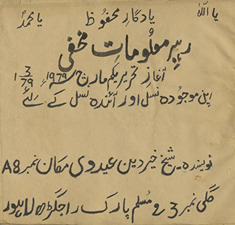 یا اللہ یادگار محفوظ یا محمدؐ
رہبر معلومات مخفی
آغاز تحریر یکم مارچ 1979ء 1 3/79
اپنی موجودہ نسل اور آئندہ نسل کے لئے
نویندہ۔ شیخ خیر دین عیدوی مکان نمبر A8
گلی نمبر 3 مسلم پارک راجگڑھ لاہور